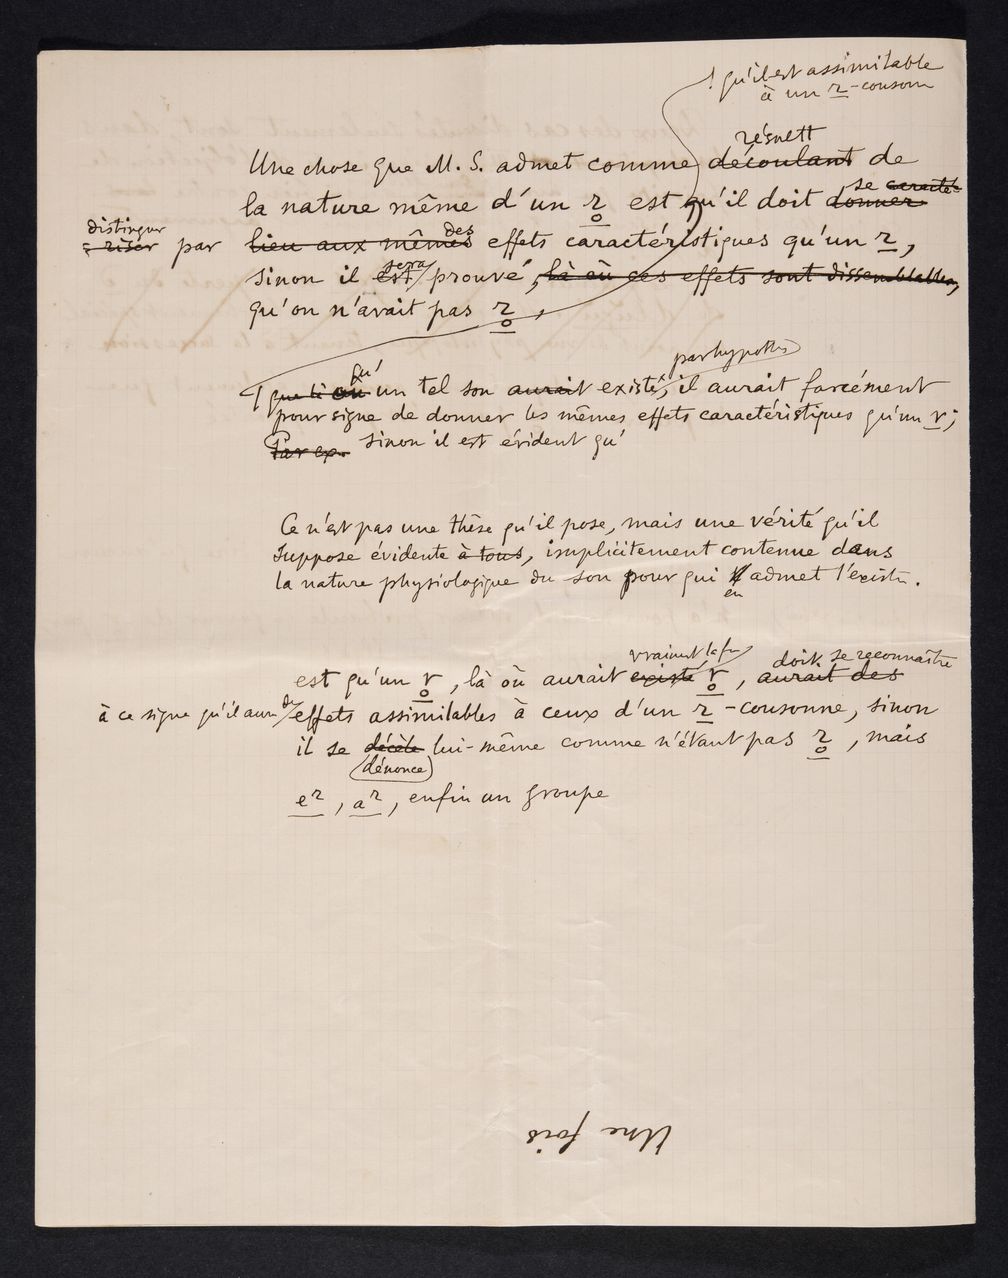 qu'il est assimilable
à un r-consonn
résult
Une chose que M. S. admet comme découlant de
se caracté-
la nature même d'un r̥ est qu'il doit donner
distinguer
riser par lieu aux mêmes des effets caractéristiques qu'un r,
sera
sinon il est prouvé, là où ces effets sont dissemblables,
qu'on n'avait pas r̥.
par hypoth
qu'
que si on un tel son aurait existé, il aurait forcément
pour signe de donner les mêmes effets caractéristiques qu'un r;
Par ex. sinon il est évident qu'
Ce n'est pas une thèse qu'il pose, mais une vérité qu'il
suppose évidente à tous, implicitement contenue dans
la nature physiologique du son pour qui en admet l'existe.
vraiment
doit se reconnaître
est qu'un r̥, là où aurait existé r̥, aurait des
à ce signe qu'il aura des effets assimilables à ceux d'un r-consonne, sinon
il se décèle lui-même comme n'étant pas r̥, mais
dénonce
er, ar, enfin un groupe
Une fois